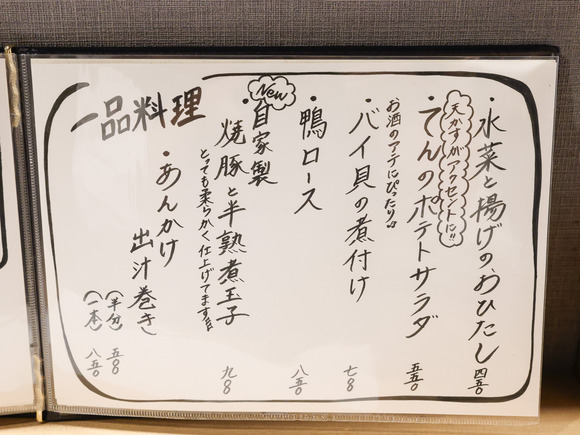 ・水菜と揚げのおひたし 四五〇
天かすがアクセントに!!
・てんのポテトサラダ 五五〇
お酒のアテにぴったり♪
・バイ貝の煮付け 七八〇
・鴨ロース 八五〇
New
・自家製
焼豚と半熟煮玉子 九八〇
とっても柔らかく仕上げてます!!!
・あんかけ
出汁巻き
(半分) 五五〇
(一本) 八五〇
一品料理